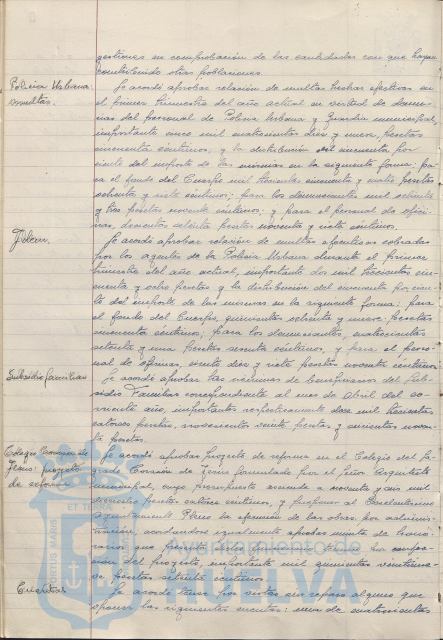 gestiones en comprobación de las cantidades con que hayan
contribuido otras poblaciones.
Policía Urbana.
multas.
Se acordó aprobar relación de multas hechas efectivas en
el primer trimestre del año actual en virtud de denun-
cias del personal de Policía Urbana y Guardia municipal,
importante cinco mil cuatrocientas diez y nueve pesetas
cincuenta céntimos, y la distribución del cincuenta por
ciento del importe de las mismas en la siguiente forma: pa-
ra el fondo del Cuerpo mil trescientas cincuenta y cuatro pesetas
ochenta y siete céntimos; para los denunciantes mil ochenta
y tres pesetas noventa céntimos; y para el personal de ofici-
nas, doscientas setenta pesetas noventa y siete céntimos.
Idem.
Se acordó aprobar relación de multas efectivas cobradas
por los agentes de la Policía Urbana durante el primer
trimestre del año actual, importante dos mil trescientas cin-
cuenta y ocho pesetas y la distribución del cincuenta por cien-
to del importe de las mismas en la siguiente forma: para
el fondo del Cuerpo, quinientas ochenta y nueve pesetas
cincuenta céntimos; para los denunciantes, cuatrocientas
setenta y una pesetas sesenta céntimos, y para el perso-
nal de oficinas, ciento diez y siete pesetas noventa céntimos.
Subsidio familiar
Se acordó aprobar las nóminas de beneficiarios del Sub-
sidio Familiar correspondiente al mes de Abril del co-
rriente año, importantes respectivamente doce mil trescientas
catorce pesetas, novecientas veinte pesetas y cuarenta noven-
ta pesetas.
Colegio Corazón de
Jesús: proyecto
de reforma
Se acordó aprobar proyecto de reforma en el Colegio del Sa-
grado Corazón de Jesús formulado por el Señor Arquitecto
municipal, cuyo presupuesto asciende a noventa y seis mil
pesetas catorce céntimos, y proponer al Excelentísimo
Ayuntamiento Pleno la ejecución de las obras por adminis-
tración, acordándose igualmente aprobar minuta de hono-
rarios que
por confec-
ción del proyecto, importante mil quinientas veintinue-
ve pesetas setenta céntimos.
Cuentas
Se acordó pasar por vistas sin reparo alguno que
oponer las siguientes cuentas: una de cuatrocientas
PORTUS MARIS
ET TERRAE
Ayuntamiento de
HUELVA